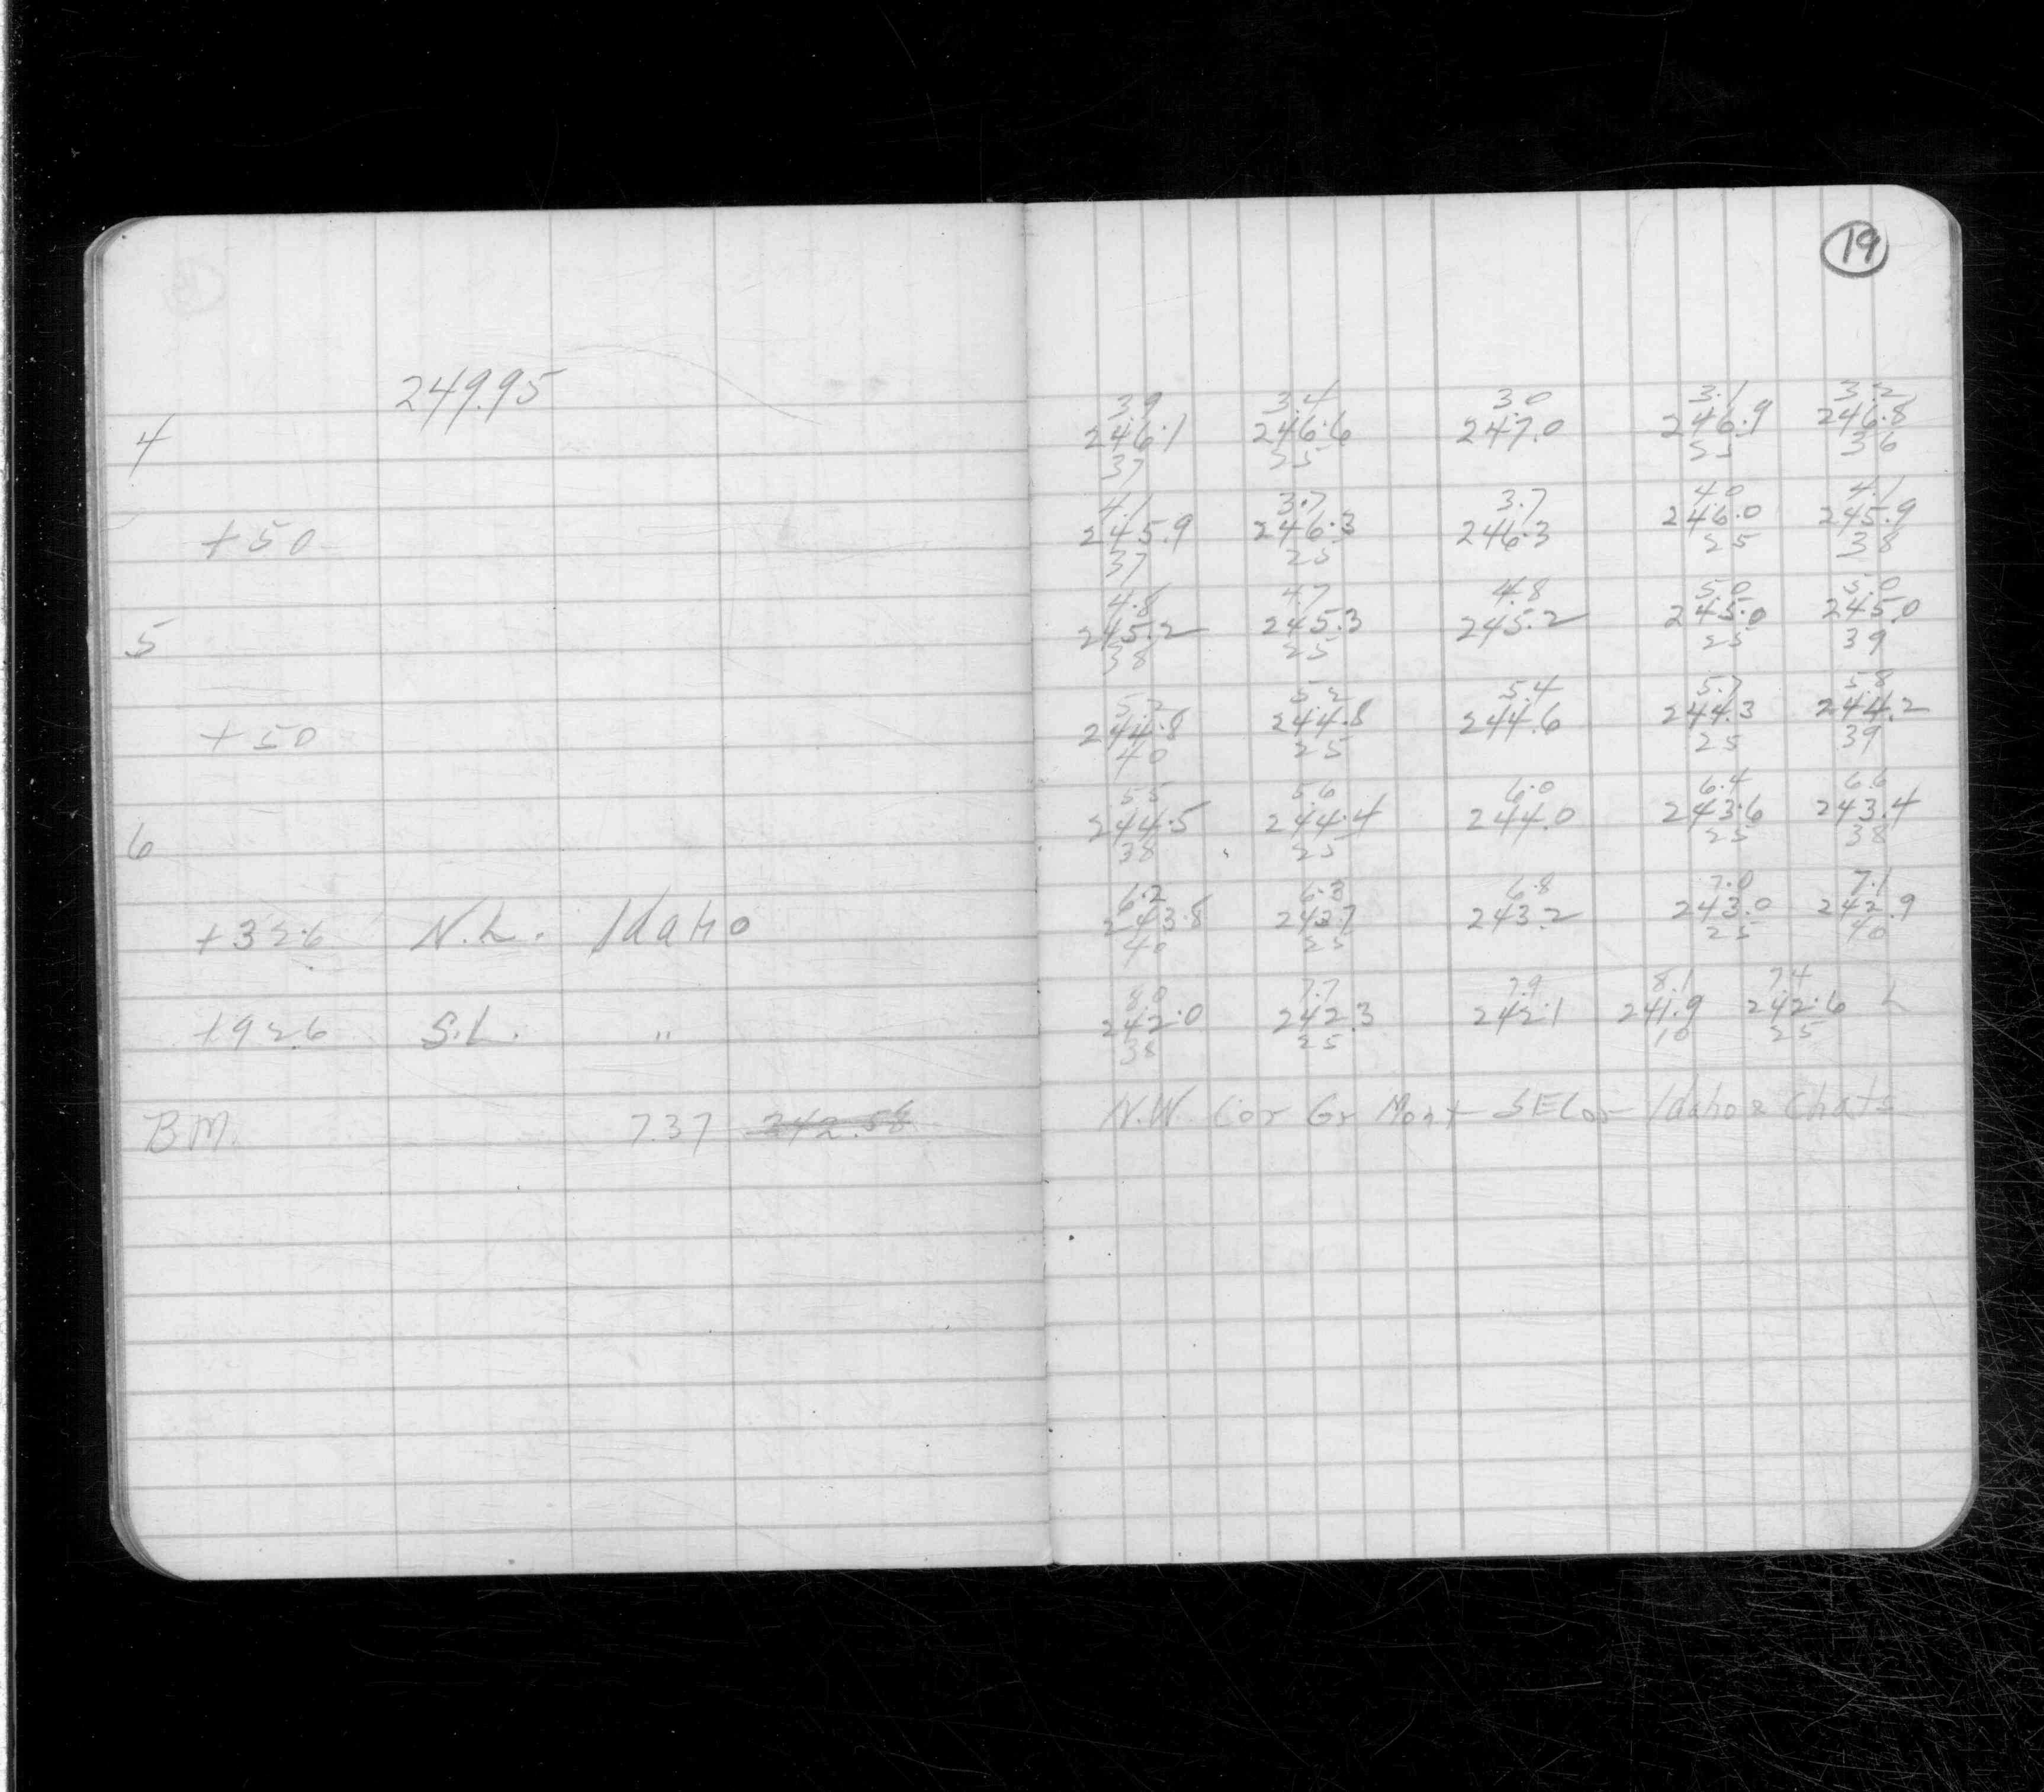 19
249.95
3.9 3.4 3.0 3.1 3.2
4 246.1 246.6 247.0 246.9 246.8
37 25 25 36
4.1 3.7 3.7 4.0 4.1
+50 245.9 246.3 246.3 246.0 245.9
37 25 25 38
4.8 4.7 4.8 5.0 5.0
5 245.2 245.3 245.2 245.0 245.0
38 25 25 39
5.2 5.2 5.4 5.7 5.8
+50 244.8 244.8 244.6 244.3 244.2
40 25 25 39
5.5 5.6 6.0 6.4 6.6
6 244.5 244.4 244.0 243.6 243.4
38 25 25 38
6.2 6.3 6.8 7.0 7.1
+32.6 N.L. Idaho 243.8 243.7 243.2 243.0 242.9
40 25 25 40
8.0 7.7 7.9 8.1 7.4
+92.6 S.L. " 242.0 242.3 242.1 241.9 242.6 L
38 25 10 25
BM. 7.37 242.58 N.W. Cor Gr Mont SE Cor Idaho & Chats